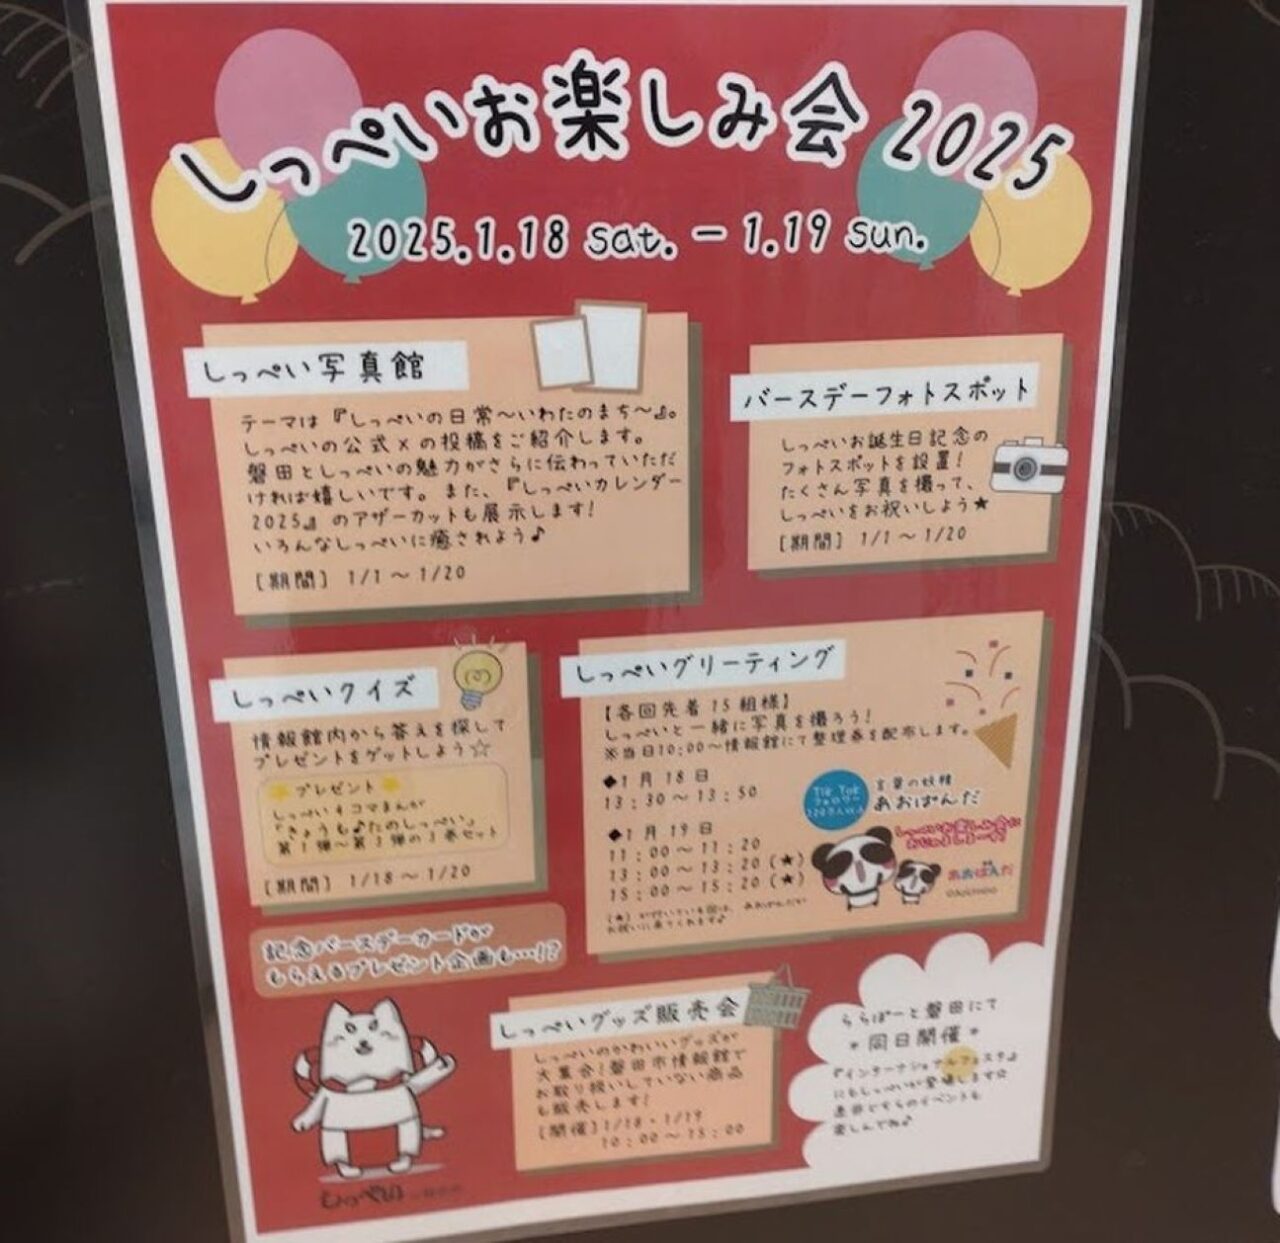 しっぺいお楽しみ会 2025
2025.1.18 sat. − 1.19 sun.
しっぺい写真館
テーマは『しっぺいの日常～いわたのまち～』。
しっぺいの公式Xの投稿をご紹介します。
磐田としっぺいの魅力がさらに伝わっていただ
ければ嬉しいです。また、『しっぺいカレンダー
2025』のアザーカットも展示します!
いろんなしっぺいに癒されよう♪
[期間] 1/1～1/20
バースデーフォトスポット
しっぺいお誕生日記念の
フォトスポットを設置!
たくさん写真を撮って、
しっぺいをお祝いしよう★
[期間] 1/1～1/20
しっぺいクイズ
情報館内から答えを探して
プレゼントをゲットしよう☆
プレゼント
しっぺい4コマまんが
『きょうも♪たのしっぺい』
第1弾～第3弾の3巻セット
[期間] 1/18～1/20
しっぺいグリーティング
【各回先着15組様】
しっぺいと一緒に写真を撮ろう!
※当日10:00～情報館にて整理券を配布します。
◆1月18日
13:30～13:50
◆1月19日
11:00～11:20
13:00～13:20(★)
15:00～15:20(★)
(★)が付いている回は、あおぱんだが
お祝いに来てくれます♪
Tik Tok
フォロワー
言葉の妖精
あおぱんだ
しっぺいお楽しみ会に
おじゃましまーす!
あおぱんだ
記念バースデーカードが
もらえるプレゼント企画も…!?
しっぺい
しっぺいグッズ販売会
しっぺいのかわいいグッズが
大集合!磐田市情報館で
お取り扱いしていない商品
も販売します!
[開催]1/18・1/19
10:00～15:00
ららぽーと磐田にて
*同日開催*
『インターナショナルフェスタ』
にもしっぺいが登場します☆
是非どちらのイベントも
楽しんでね♪